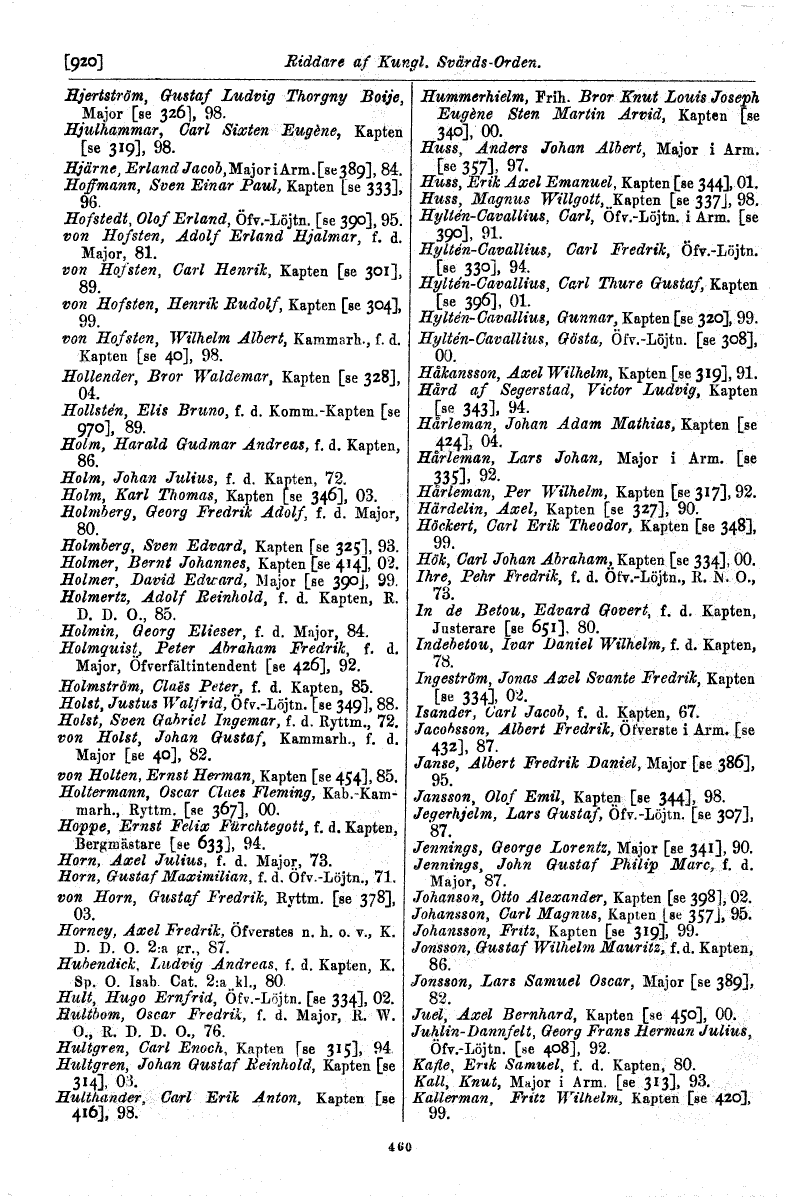 [920]
Riddare af Kungl. Svärds-Orden.
Hjertström, Gustaf Ludvig Thorgny Boije,
Major [se 326], 98.
Hjulhammar, Carl Sixten Eugène, Kapten
[se 319], 98.
Hjärne, Erland Jacob, Major i Arm. [se 389], 84.
Hoffmann, Sven Einar Paul, Kapten [se 333],
96.
Hofstedt, Olof Erland, Öfv.-Löjtn. [se 390], 95.
von Hofsten, Adolf Erland Hjalmar, f. d.
Major, 81.
von Hofsten, Carl Henrik, Kapten [se 301],
89.
von Hofsten, Henrik Rudolf, Kapten [se 304],
99.
von Hofsten, Wilhelm Albert, Kammarh., f. d.
Kapten [se 40], 98.
Hollender, Bror Waldemar, Kapten [se 328],
04.
Hollstén, Elis Bruno, f. d. Komm.-Kapten [se
970], 89.
Holm, Harald Gudmar Andreas, f. d. Kapten,
86.
Holm, Johan Julius, f. d. Kapten, 72.
Holm, Karl Thomas, Kapten [se 346], 03.
Holmberg, Georg Fredrik Adolf, f. d. Major,
80.
Holmberg, Sven Edvard, Kapten [se 325], 93.
Holmer, Bernt Johannes, Kapten [se 414], 02.
Holmer, David Edward, Major [se 390], 99.
Holmertz, Adolf Reinhold, f. d. Kapten, R.
D. D. O., 85.
Holmin, Georg Elieser, f. d. Major, 84.
Holmquist, Peter Abraham Fredrik, f. d.
Major, Öfverfältintendent [se 426], 92.
Holmström, Claës Peter, f. d. Kapten, 85.
Holst, Justus Walfrid, Öfv.-Löjtn. [se 349], 88.
Holst, Sven Gabriel Ingemar, f. d. Ryttm., 72.
von Holst, Johan Gustaf, Kammarh., f. d.
Major [se 40], 82.
von Holten, Ernst Herman, Kapten [se 454], 85.
Holtermann, Oscar Claes Fleming, Kab.-Kam-
marh., Ryttm. [se 367], 00.
Hoppe, Ernst Felix Fürchtegott, f. d. Kapten,
Bergmästare [se 633], 94.
Horn, Axel Julius, f. d. Major, 73.
Horn, Gustaf Maximilian, f. d. Öfv.-Löjtn., 71.
von Horn, Gustaf Fredrik, Ryttm. [se 378],
03.
Horney, Axel Fredrik, Öfverstes n. h. o. v., K.
D. D. O. 2:a gr., 87.
Hubendick, Ludvig Andreas, f. d. Kapten, K.
Sp. O. Isab. Cat. 2:a kl., 80.
Hult, Hugo Ernfrid, Öfv.-Löjtn. [se 334], 02.
Hultbom, Oscar Fredrik, f. d. Major, R. W.
O., R. D. D. O., 76.
Hultgren, Carl Enoch, Kapten [se 315], 94.
Hultgren, Johan Gustaf Reinhold, Kapten [se
314], 03.
Hulthander, Carl Erik Anton, Kapten [se
416], 98.
Hummerhielm, Frih. Bror Knut Louis Joseph
Eugène Sten Martin Arvid, Kapten [se
340], 00.
Huss, Anders Johan Albert, Major i Arm.
[se 357], 97.
Huss, Erik Axel Emanuel, Kapten [se 344], 01.
Huss, Magnus Willgott, Kapten [se 337], 98.
Hyltén-Cavallius, Carl, Öfv.-Löjtn. i Arm. [se
390], 91.
Hyltén-Cavallius, Carl Fredrik, Öfv.-Löjtn.
[se 330], 94.
Hyltén-Cavallius, Carl Thure Gustaf, Kapten
[se 396], 01.
Hyltén-Cavallius, Gunnar, Kapten [se 320], 99.
Hyltén-Cavallius, Gösta, Öfv.-Löjtn. [se 308],
00.
Håkansson, Axel Wilhelm, Kapten [se 319], 91.
Hård af Segerstad, Victor Ludvig, Kapten
[se 343], 94.
Hårleman, Johan Adam Mathias, Kapten [se
424], 04.
Hårleman, Lars Johan, Major i Arm. [se
335], 92.
Hårleman, Per Wilhelm, Kapten [se 317], 92.
Härdelin, Axel, Kapten [se 327], 90.
Höckert, Carl Erik Theodor, Kapten [se 348],
99.
Hök, Carl Johan Abraham, Kapten [se 334], 00.
Ihre, Pehr Fredrik, f. d. Öfv.-Löjtn., R. N. O.,
73.
In de Betou, Edvard Govert, f. d. Kapten,
Justerare [se 651], 80.
Indebetou, Ivar Daniel Wilhelm, f. d. Kapten,
78.
Ingeström, Jonas Axel Svante Fredrik, Kapten
[se 334], 02.
Isander, Carl Jacob, f. d. Kapten, 67.
Jacobsson, Albert Fredrik, Öfverste i Arm. [se
432], 87.
Janse, Albert Fredrik Daniel, Major [se 386],
95.
Jansson, Olof Emil, Kapten [se 344], 98.
Jegerhjelm, Lars Gustaf, Öfv.-Löjtn. [se 307],
87.
Jennings, George Lorentz, Major [se 341], 90.
Jennings, John Gustaf Philip Marc, f. d.
Major, 87.
Johanson, Otto Alexander, Kapten [se 398], 02.
Johansson, Carl Magnus, Kapten [se 357], 95.
Johansson, Fritz, Kapten [se 319], 99.
Jonsson, Gustaf Wilhelm Mauritz, f. d. Kapten,
86.
Jonsson, Lars Samuel Oscar, Major [se 389],
82.
Juel, Axel Bernhard, Kapten [se 450], 00.
Juhlin-Dannfelt, Georg Frans Herman Julius,
Öfv.-Löjtn. [se 408], 92.
Kafle, Erik Samuel, f. d. Kapten, 80.
Kall, Knut, Major i Arm. [se 313], 93.
Kallerman, Fritz Wilhelm, Kapten [se 420],
99.
460